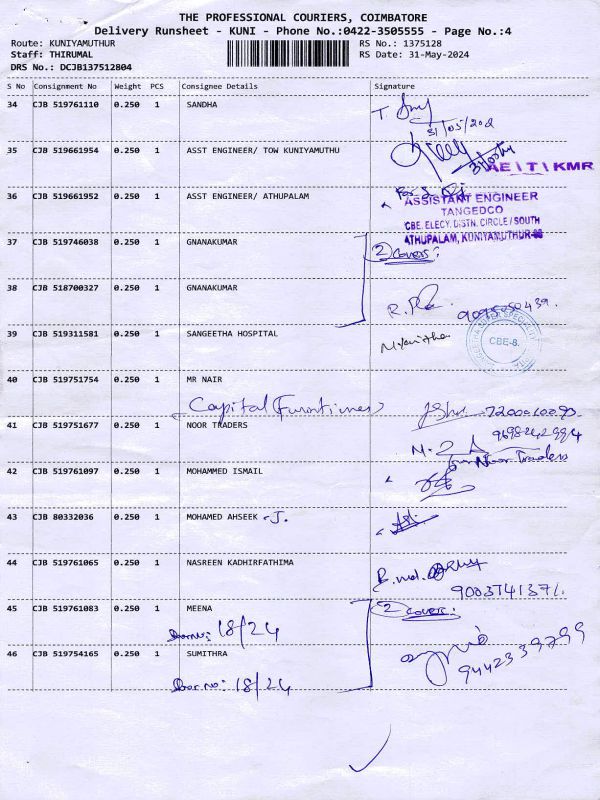 THE PROFESSIONAL COURIERS, COIMBATORE
Delivery Runsheet - KUNI - Phone No.:0422-3505555 - Page No.:4
Route: KUNIYAMUTHUR RS No.: 1375128
Staff: THIRUMAL RS Date: 31-May-2024
DRS No.: DCJB137512804
S No Consignment No Weight PCS Consignee Details Signature
34 CJB 519761110 0.250 1 SANDHA
31/05/202
35 CJB 519661954 0.250 1 ASST ENGINEER/ TOW KUNIYAMUTHU
AE | T | KMR
36 CJB 519661952 0.250 1 ASST ENGINEER/ ATHUPALAM
For
ASSISTANT ENGINEER
TANGEDCO
CBE. ELECY. DISTN. CIRCLE / SOUTH
ATHUPALAM, KUNIYAMUTHUR
37 CJB 519746038 0.250 1 GNANAKUMAR
2 Covers:
38 CJB 518700327 0.250 1 GNANAKUMAR
39 CJB 519311581 0.250 1 SANGEETHA HOSPITAL
CBE-8.
40 CJB 519751754 0.250 1 MR NAIR
Capital
41 CJB 519751677 0.250 1 NOOR TRADERS
Noor Traders
42 CJB 519761097 0.250 1 MOHAMMED ISMAIL
43 CJB 80332036 0.250 1 MOHAMED AHSEEK - J.
44 CJB 519761065 0.250 1 NASREEN KADHIRFATHIMA
45 CJB 519761083 0.250 1 MEENA
2 Covers:
Door No: 18/24
46 CJB 519754165 0.250 1 SUMITHRA
9442339799
Door No: 18/24